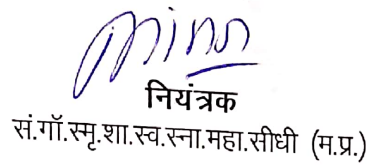 नियंत्रक
सं.गाॅ.स्मृ.शा.स्व.स्ना.महा.सीधी (म.प्र.)